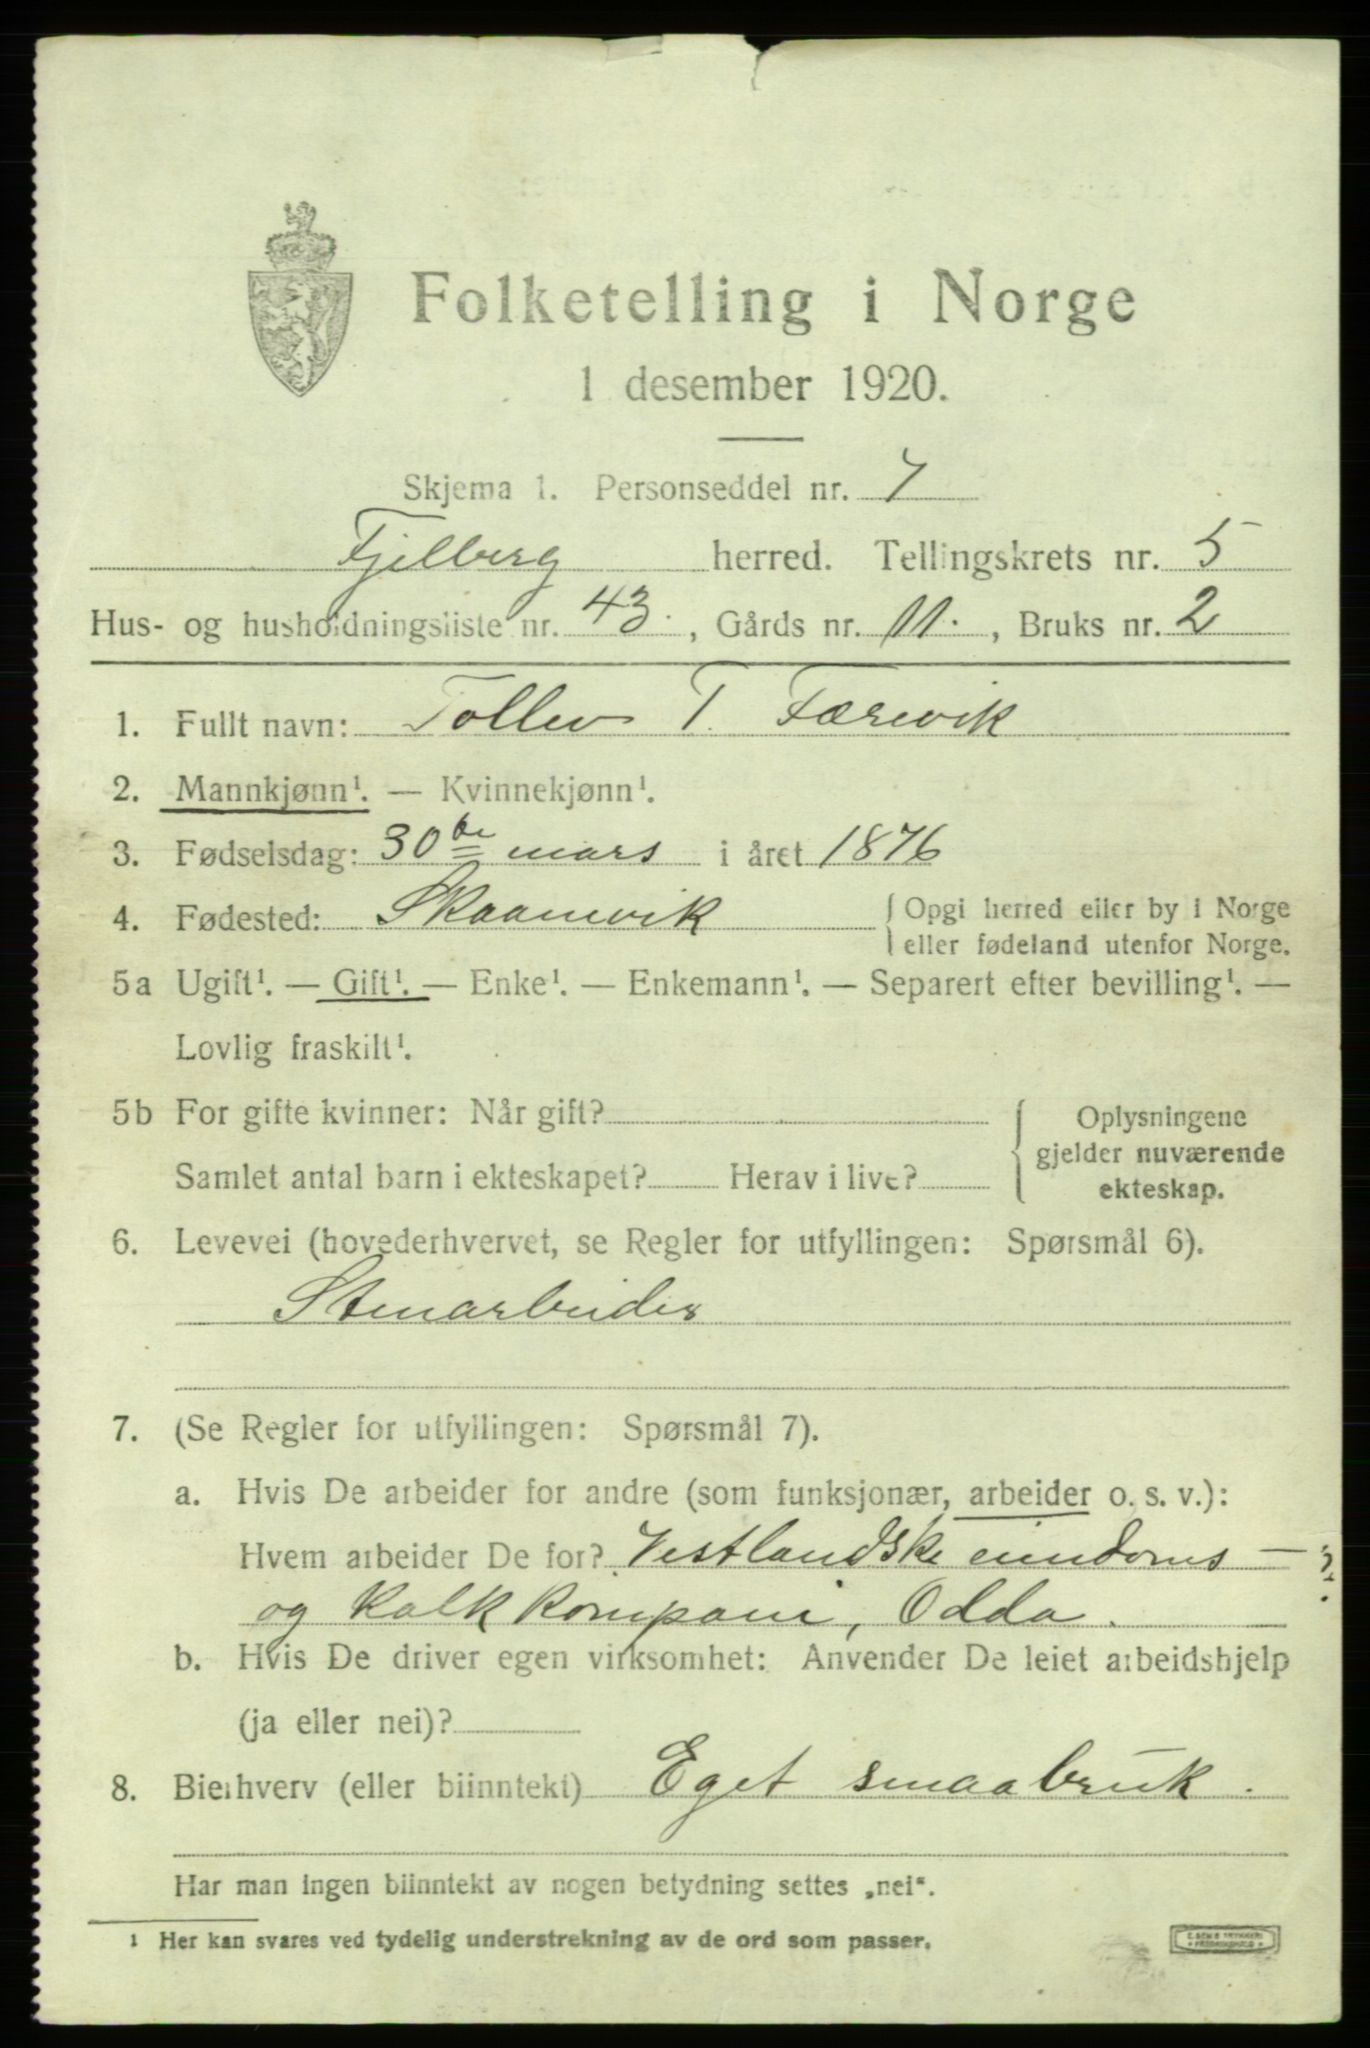 Folketelling i Norge
1 desember 1920.
Skjema 1. Personseddel nr. 7
Fjelberg herred. Tellingskrets nr. 5
Hus- og husholdningsliste nr. 43. , Gårds nr. 11. , Bruks nr. 2
1. Fullt navn: Tollev T. Færevik
2. Mannkjønn¹. — Kvinnekjønn¹.
3. Fødselsdag: 30te mars i året 1876
4. Fødested: Skaanevik { Opgi herred eller by i Norge
eller fødeland utenfor Norge.
5a Ugift¹. — Gift¹. — Enke¹. — Enkemann¹. — Separert efter bevilling¹. —
Lovlig fraskilt¹.
5b For gifte kvinner: Når gift?
Samlet antal barn i ekteskapet? Herav i live?
{ Oplysningene
gjelder nuværende
ekteskap.
6. Levevei (hovederhvervet, se Regler for utfyllingen: Spørsmål 6).
Stenarbeider
7. (Se Regler for utfyllingen: Spørsmål 7).
a. Hvis De arbeider for andre (som funksjonær, arbeider o. s. v.):
Hvem arbeider De for? Vestlandske eiendoms —
og Kalkkompani, Odda.
b. Hvis De driver egen virksomhet: Anvender De leiet arbeidshjelp
(ja eller nei)?
8. Bierhverv (eller biinntekt) Eget smaabruk.
Har man ingen biinntekt av nogen betydning settes „nei“.
¹ Her kan svares ved tydelig understrekning av de ord som passer.